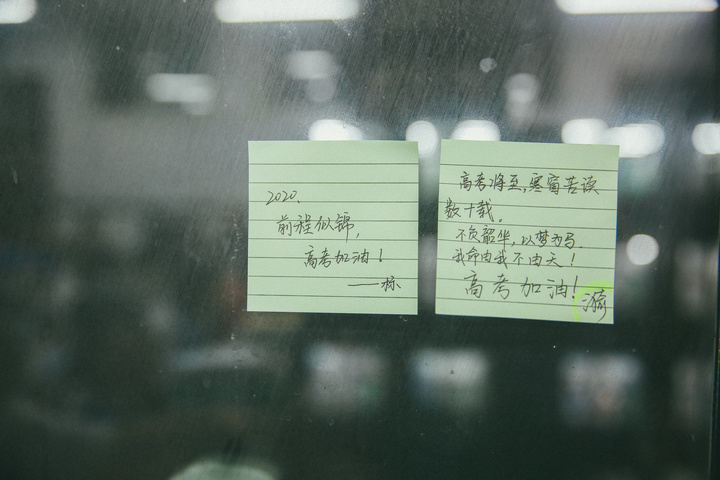 2020.
前程似锦,
高考加油!
——栋
高考将至,寒窗苦读
数十载.
不负韶华,以梦为马.
我命由我不由天!
高考加油!